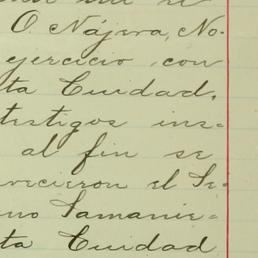 O. Nájera, No-
ejercicio con
ta Ciudad,
testigos ins=
al fin se
recieron el Se-
no Samanie=
ta Ciudad